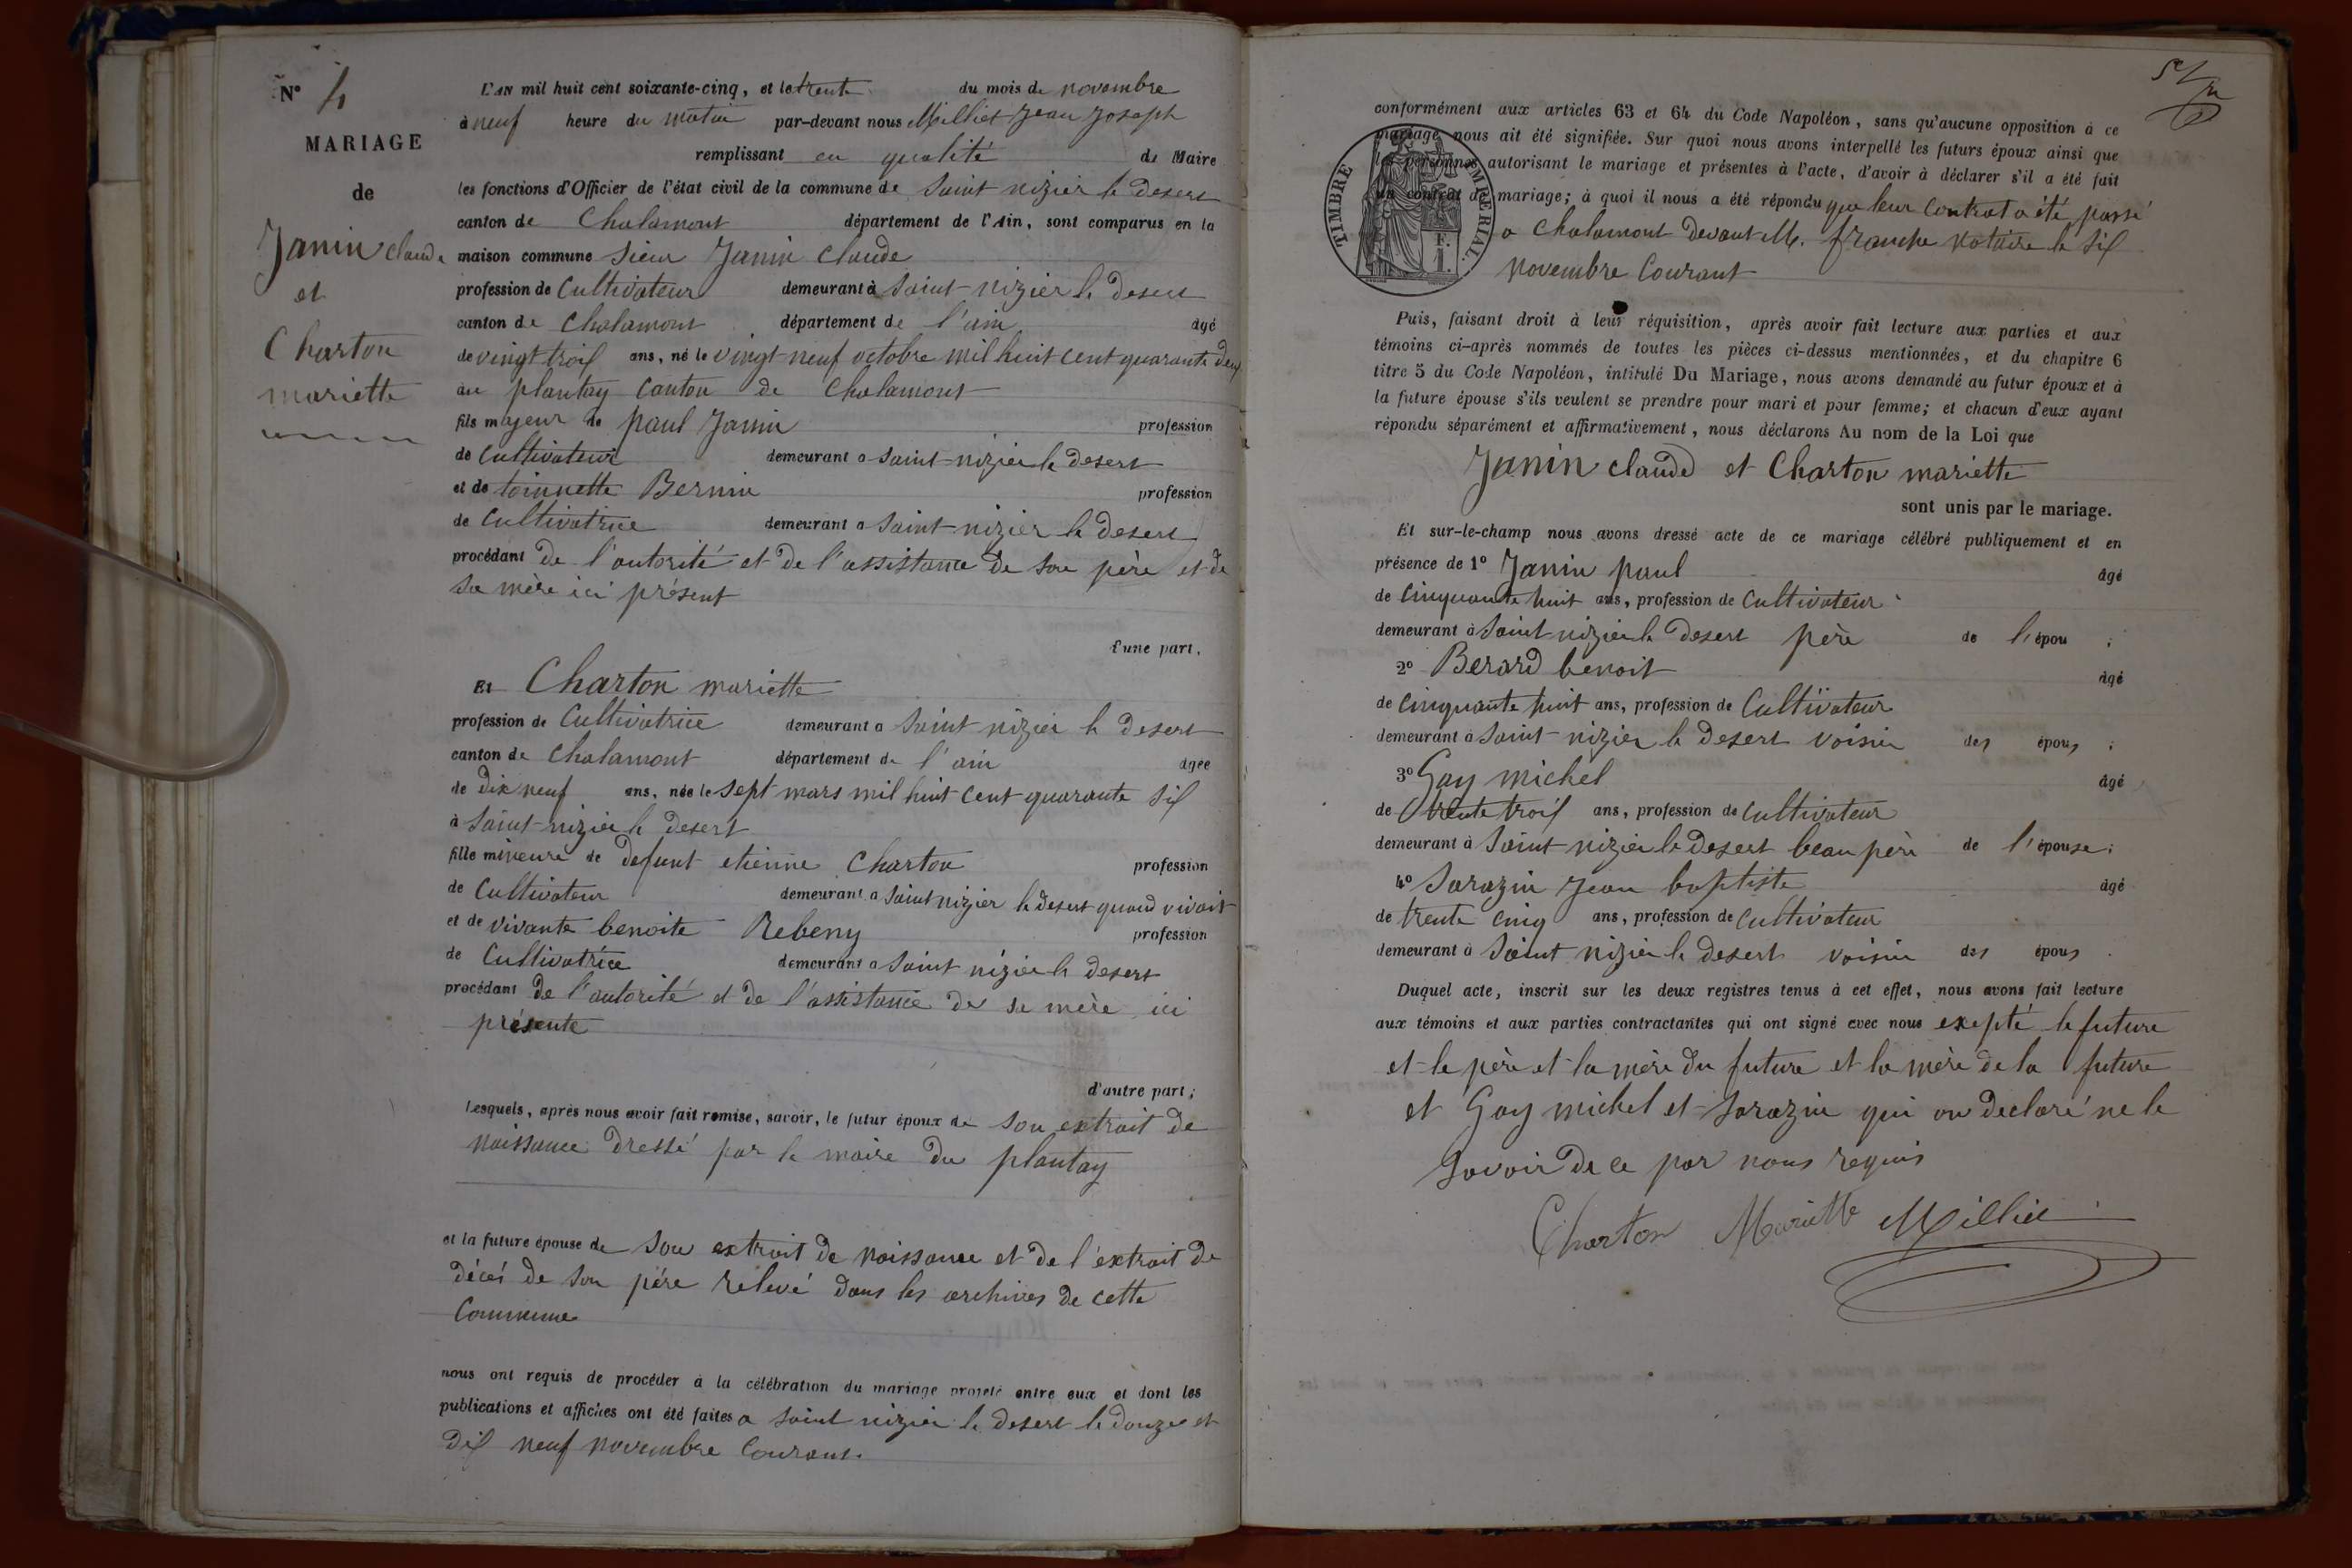 N° 4
MARIAGE
de
Janin claude
et
Charton
mariette
L'AN mil huit cent soixante-cinq, et le trente du mois de novembre
à neuf heure du matin par-devant nous Milliet Jean Joseph
remplissant en qualité de Maire
les fonctions d'Officier de l'état civil de la commune de Saint nizier le desert
canton de Chalamont département de l'Ain, sont comparus en la
maison commune Sieur Janin Claude
profession de Cultivateur demeurant à Saint-nizier le desert
canton de Chalamont département de l'ain âgé
de vingt trois ans, né le vingt-neuf octobre mil huit cent quarante deux
au plantay Canton de Chalamont
fils majeur de paul Janin profession
de Cultivateur demeurant a Saint-nizier le desert
et de toinnette Bernin profession
de Cultivatrice demeurant a Saint-nizier le desert
procédant de l'autorité et de l'assistance de son père et de
sa mère ici présent
d'une part,
Et Charton mariette
profession de Cultivatrice demeurant a Saint nizier le desert
canton de Chalamont département de l'ain âgée
de dix neuf ans, née le sept mars mil huit cent quarante six
à Saint-nizier le desert
fille mineure de defunt etienne Charton profession
de Cultivateur demeurant a Saint nizier le desert quand vivait
et de vivante benoite Rebeny profession
de Cultivatrice demeurant a Saint nizier le desert
procédant de l'autorité et de l'assistance de sa mère ici
présente
d'autre part;
Lesquels, après nous avoir fait remise, savoir, le futur époux de son extrait de
naissance dressé par le maire du plantay
et la future épouse de son extrait de naissance et de l'extrait de
décés de son pére relevé dans les archives de cette
Commune
nous ont requis de procéder à la célébration du mariage projeté entre eux et dont les
publications et affiches ont été faites a Saint nizier le desert le douze et
dix neuf novembre Courant.
conformément aux articles 63 et 64 du Code Napoléon, sans qu'aucune opposition à ce
mariage nous ait été signifiée. Sur quoi nous avons interpellé les futurs époux ainsi que
les personnes autorisant le mariage et présentes à l'acte, d'avoir à déclarer s'il a été fait
un contrat de mariage; à quoi il nous a été répondu que leur Contrat a été passé
a Chalamont devant M. franche notaire le six
novembre Courant
TIMBRE IMPERIAL.
1 F.
Puis, faisant droit à leur réquisition, après avoir fait lecture aux parties et aux
témoins ci-après nommés de toutes les pièces ci-dessus mentionnées, et du chapitre 6
titre 5 du Code Napoléon, intitulé Du Mariage, nous avons demandé au futur époux et à
la future épouse s'ils veulent se prendre pour mari et pour femme; et chacun d'eux ayant
répondu séparément et affirmativement, nous déclarons Au nom de la Loi que
Janin claude et Charton mariette
sont unis par le mariage.
Et sur-le-champ nous avons dressé acte de ce mariage célébré publiquement et en
présence de 1° Janin paul âgé
de Cinquante huit ans, profession de Cultivateur
demeurant à Saint-nizier le desert père de l'épou ;
2° Berard benoit âgé
de Cinquante huit ans, profession de Cultivateur
demeurant à Saint-nizier le desert voisin des époux ;
3° Gay michel âgé
de trente trois ans, profession de Cultivateur
demeurant à Saint nizier le desert beau père de l'épouse;
4° Sarazin Jean baptiste âgé
de trente cinq ans, profession de Cultivateur
demeurant à Saint nizier le desert voisin des époux .
Duquel acte, inscrit sur les deux registres tenus à cet effet, nous avons fait lecture
aux témoins et aux parties contractantes qui ont signé avec nous exepté le future
et le père et la mère du future et la mère de la future
et Gay michel et Sarazin qui on declaré ne le
savoir de ce par nous requis
Charton Mariette Milliet